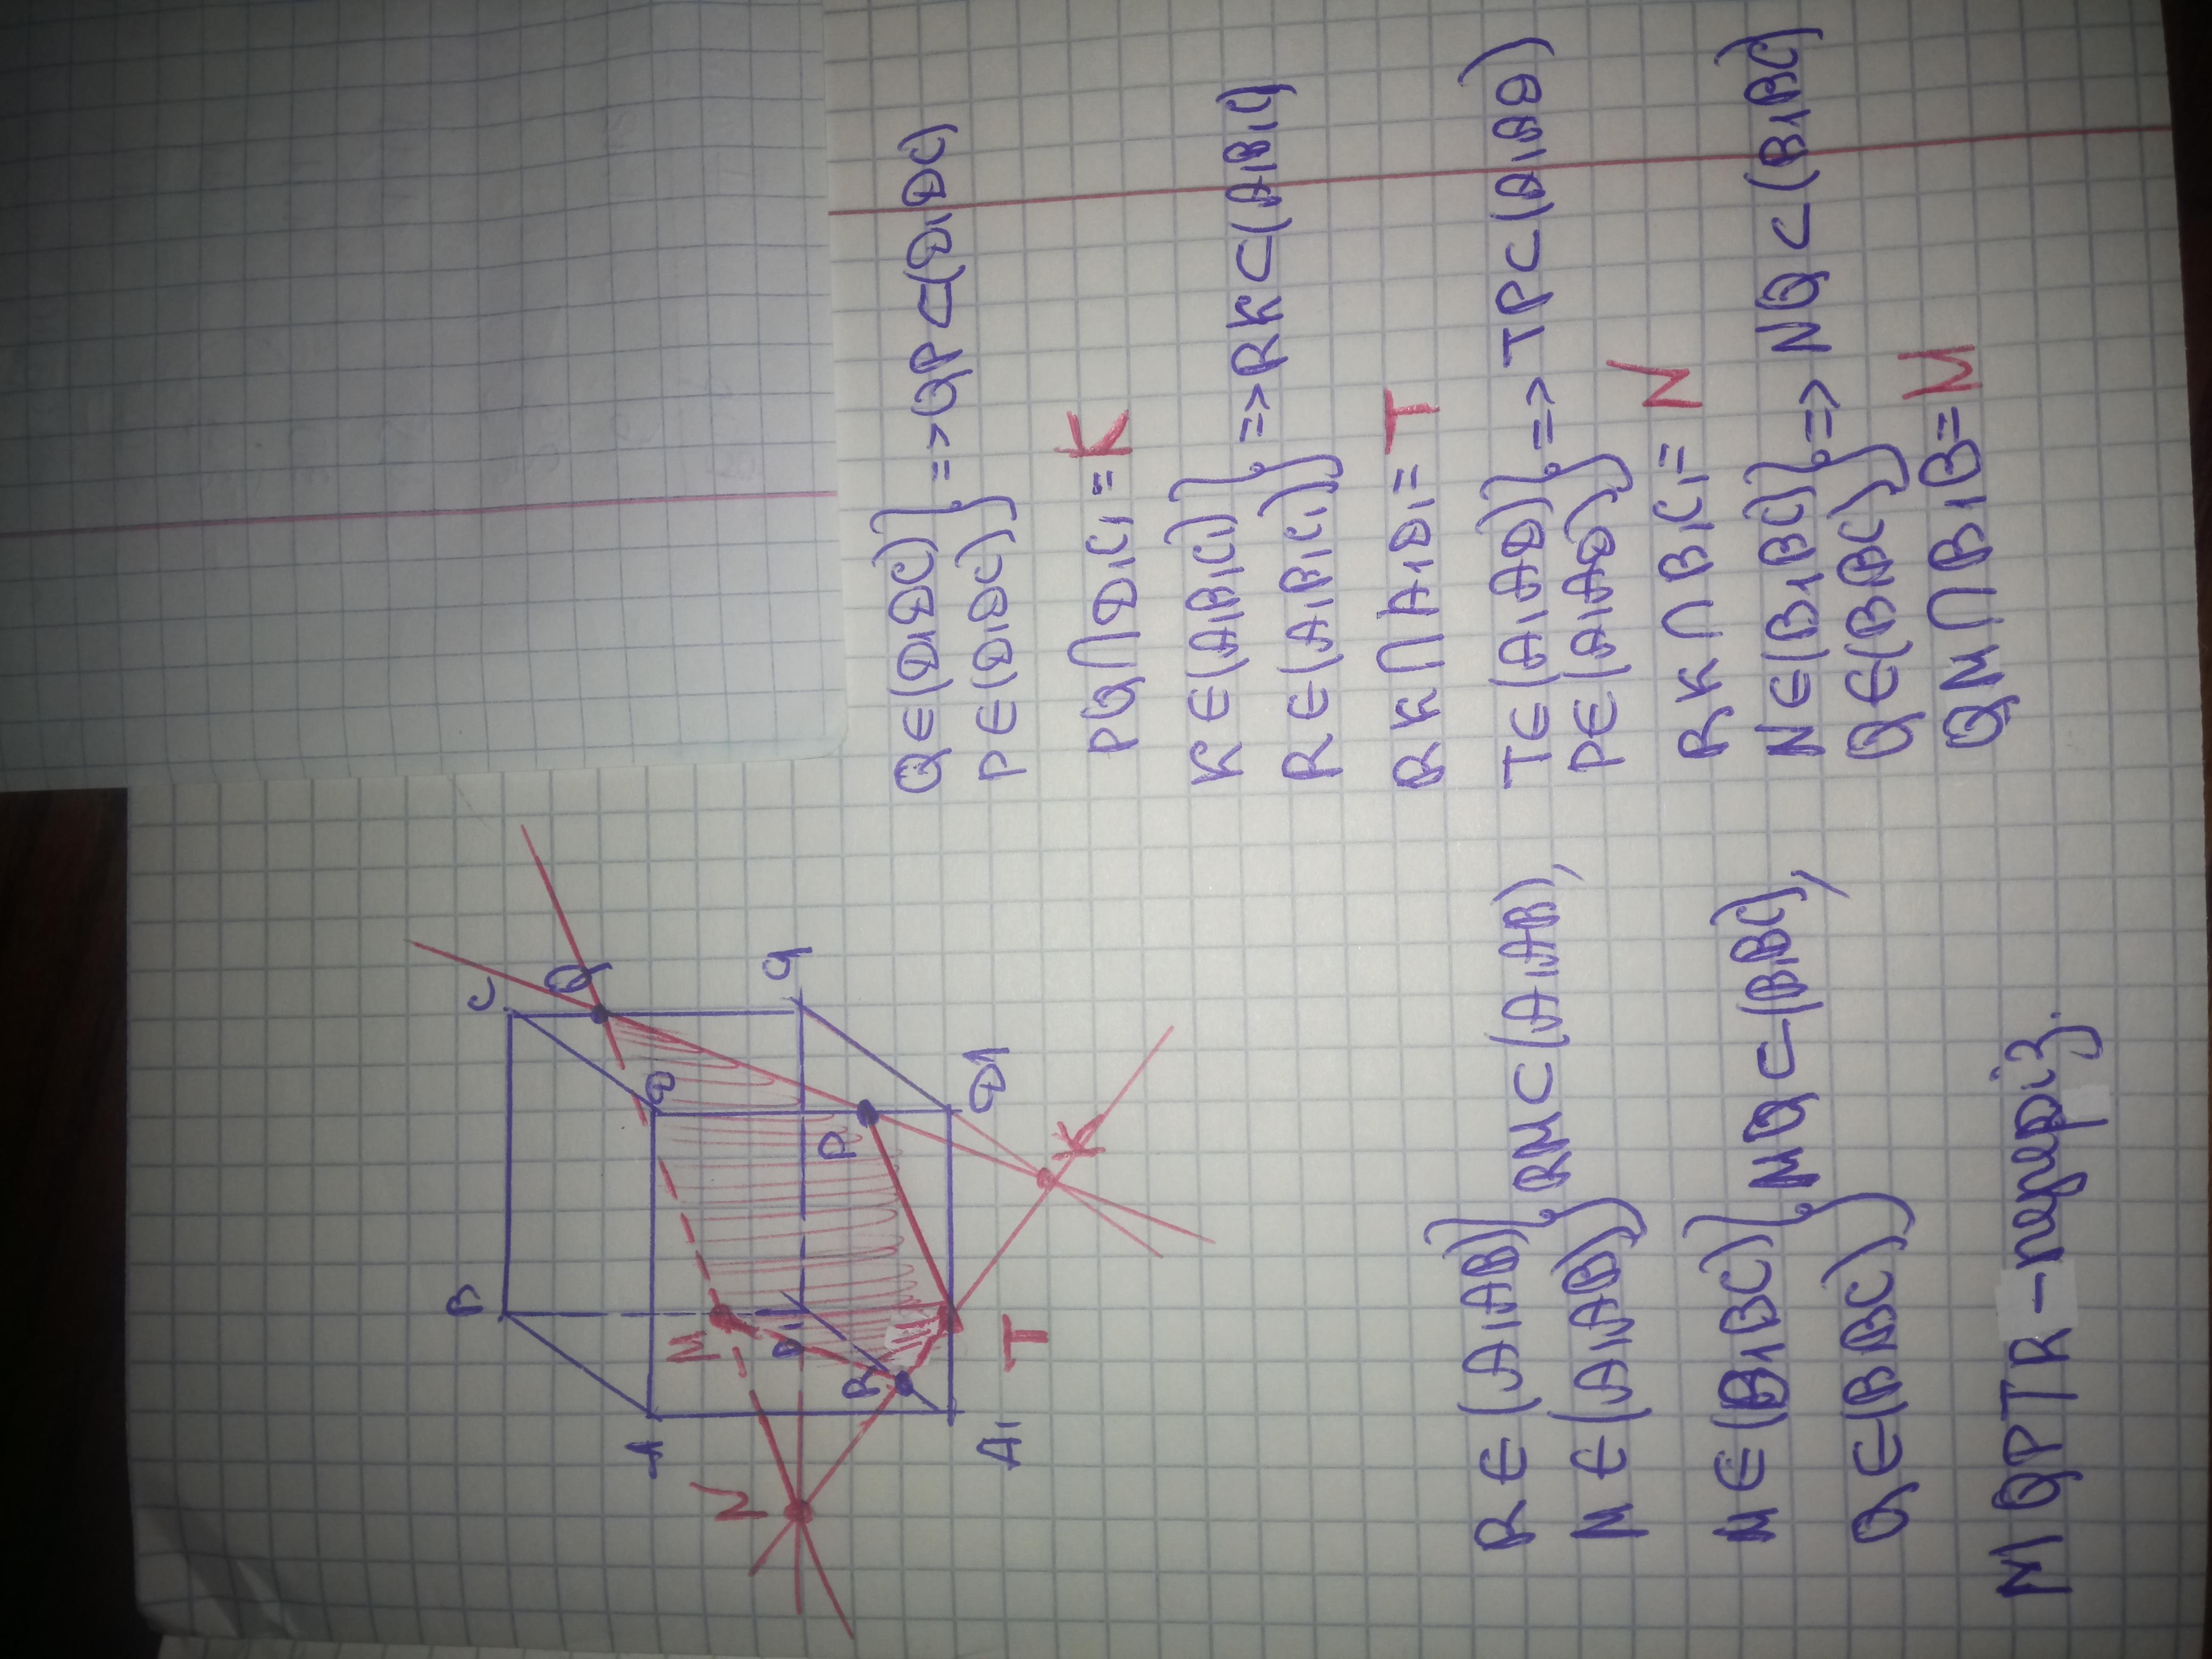 B
C
A
D
Q
M
B1
C1
N
P
R
A1
T
D1
K
Q∈(D1DC)
P∈(D1DC) } => QP⊂(D1DC)
PQ∩D1C1=K
K∈(A1B1C1)
R∈(A1B1C1) } => RK⊂(A1B1C1)
RK∩A1D1=T
T∈(A1AD)
P∈(A1AD) } => TP⊂(A1AD)
RK∩B1C1=N
N∈(B1BC)
Q∈(BBC) } => NQ⊂(B1BC)
QN∩B1B=M
R∈(A1AB)
M∈(A1AB) } RM⊂(A1AB),
M∈(B1BC)
Q∈(BBC) } MQ⊂(B1BC),
MQPTR-переріз.